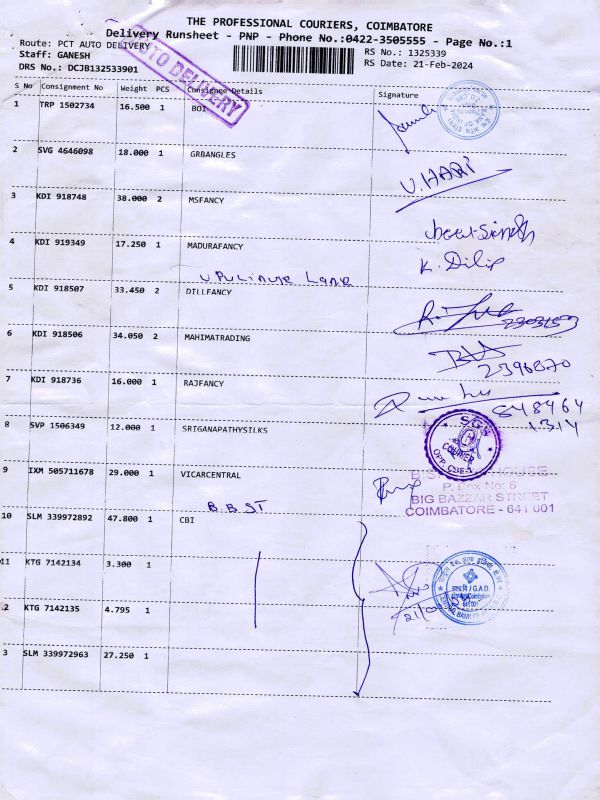 THE PROFESSIONAL COURIERS, COIMBATORE
Delivery Runsheet - PNP - Phone No.:0422-3505555 - Page No.:1
Route: PCT AUTO DELIVERY
RS No.: 1325339
Staff: GANESH
RS Date: 21-Feb-2024
DRS No.: DCJB132533901
AUTO DELIVERY
S No Consignment No Weight PCS Consignee Details Signature
1 TRP 1502734 16.500 1 BOI
2 SVG 4646098 18.000 1 GRBANGLES
U.HARI
3 KDI 918748 38.000 2 MSFANCY
4 KDI 919349 17.250 1 MADURAFANCY
K. Dilip
Lane
5 KDI 918507 33.450 2 DILLFANCY
6 KDI 918506 34.050 2 MAHIMATRADING
2396870
7 KDI 918736 16.000 1 RAJFANCY
848464
1314
8 SVP 1506349 12.000 1 SRIGANAPATHYSILKS
SGS
COURIER
9 IXM 505711678 29.000 1 VICARCENTRAL
P. Box No: 6
BIG BAZZAR STREET
COIMBATORE - 641 001
B.B ST
10 SLM 339972892 47.800 1 CBI
11 KTG 7142134 3.300 1
2 KTG 7142135 4.795 1
3 SLM 339972963 27.250 1